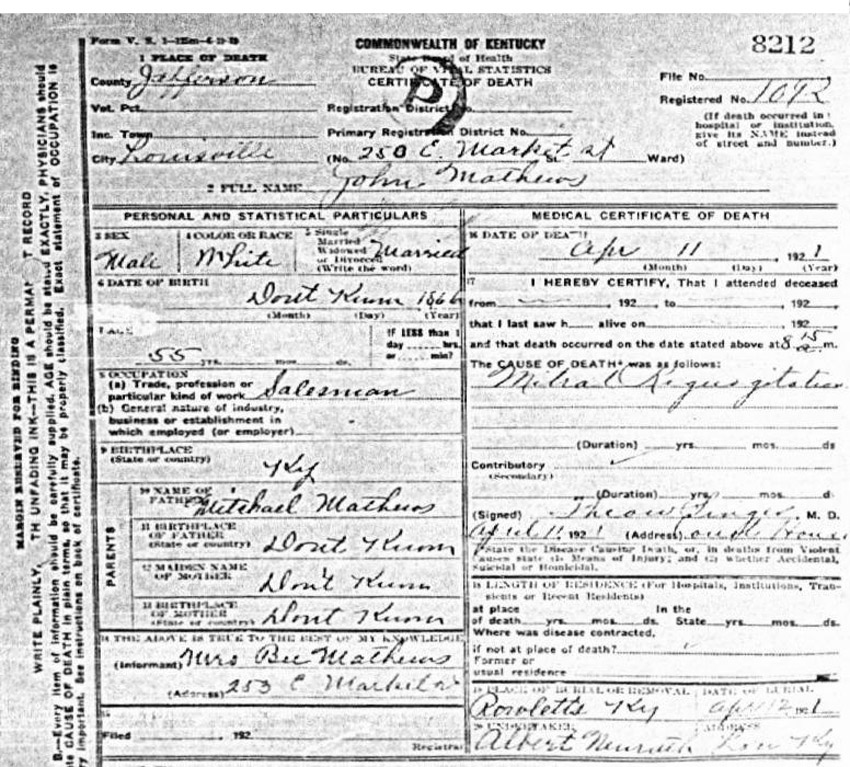 Form V. S. 1
COMMONWEALTH OF KENTUCKY
8212
1 PLACE OF DEATH
State Board of Health
BUREAU OF VITAL STATISTICS
CERTIFICATE OF DEATH
County Jefferson
File No.
Vot. Pct.
Registration District No.
Registered No. 1092
Inc. Town
Primary Registration District No.
(If death occurred in hospital or institution, give its NAME instead of street and number.)
City Louisville (No. 250 E. Market St. Ward)
2 FULL NAME John Mathews
PERSONAL AND STATISTICAL PARTICULARS
3 SEX Male
4 COLOR OR RACE White
5 Single Married Widowed or Divorced (Write the word) Married
6 DATE OF BIRTH Dont Know 1866
(Month) (Day) (Year)
7 AGE 55 yrs. mos. ds.
IF LESS than 1 day hrs. or min?
8 OCCUPATION
(a) Trade, profession or particular kind of work Salesman
(b) General nature of industry, business or establishment in which employed (or employer)
9 BIRTHPLACE
(State or country) Ky
PARENTS
10 NAME OF FATHER Mitchael Mathews
11 BIRTHPLACE OF FATHER
(State or country) Dont Know
12 MAIDEN NAME OF MOTHER Don't Know
13 BIRTHPLACE OF MOTHER
(State or country) Dont Know
14 THE ABOVE IS TRUE TO THE BEST OF MY KNOWLEDGE
(Informant) Mrs Bee Mathews
(Address) 253 E Market
15
Filed 192
Registrar
MEDICAL CERTIFICATE OF DEATH
16 DATE OF DEATH
Apr 11, 1921
(Month) (Day) (Year)
17 I HEREBY CERTIFY, That I attended deceased
from , 192 , to , 192
that I last saw h alive on , 192
and that death occurred on the date stated above at 8 15 a. m.
The CAUSE OF DEATH* was as follows:
Mitral Regurgitation
(Duration) yrs. mos. ds
Contributory
(Secondary)
(Duration) yrs. mos. ds.
(Signed) M. D.
April 11, 1921 (Address)
*State the Disease Causing Death, or, in deaths from Violent Causes state (1) Means of Injury; and (2) whether Accidental, Suicidal or Homicidal.
18 LENGTH OF RESIDENCE (For Hospitals, Institutions, Transients or Recent Residents)
at place In the
of death yrs. mos. ds. State yrs. mos. ds.
Where was disease contracted,
if not at place of death?
Former or
usual residence
19 PLACE OF BURIAL OR REMOVAL
DATE OF BURIAL
Rowletts Ky Apr 12, 1921
20 UNDERTAKER
ADDRESS
Albert Ky
MARGIN RESERVED FOR BINDING
WRITE PLAINLY, UNFADING INK—THIS IS A PERMA T RECORD
B.—Every item of information should be carefully supplied. AGE should be stated EXACTLY. PHYSICIANS should
te CAUSE OF DEATH in plain terms, so that it may be properly classified. Exact statement of OCCUPATION is
ry important. See instructions on back of certificate.